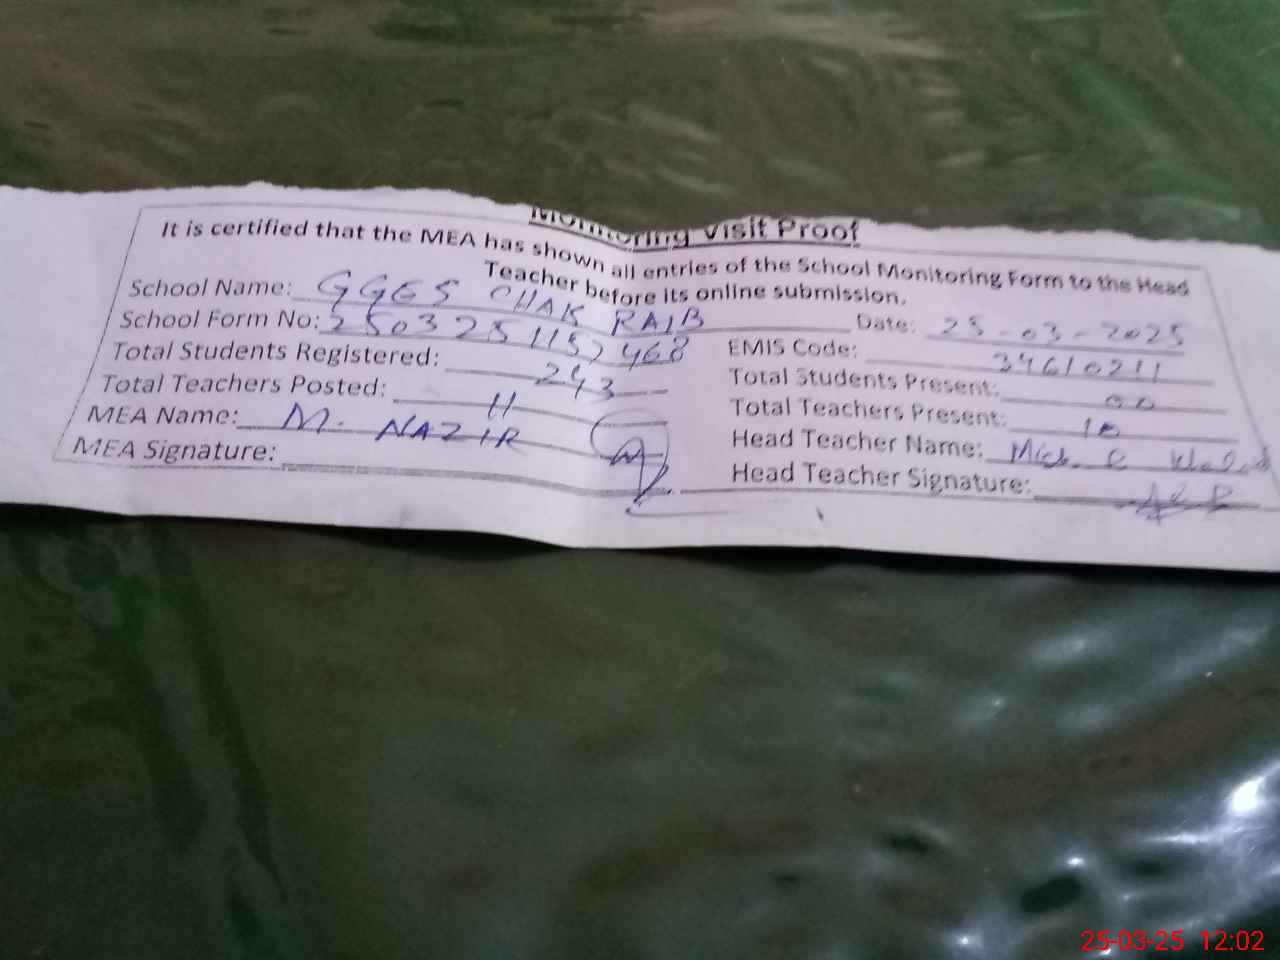 Monitoring Visit Proof
It is certified that the MEA has shown all entries of the School Monitoring Form to the Head
Teacher before its online submission.
School Name: GGES CHAK RAIB Date: 25-03-2025
School Form No: 2503251152468 EMIS Code: 34610211
Total Students Registered: 243 Total Students Present: 00
Total Teachers Posted: 11 Total Teachers Present: 10
MEA Name: M. NAZIR Head Teacher Name:
MEA Signature: Head Teacher Signature:
25-03-25 12:02